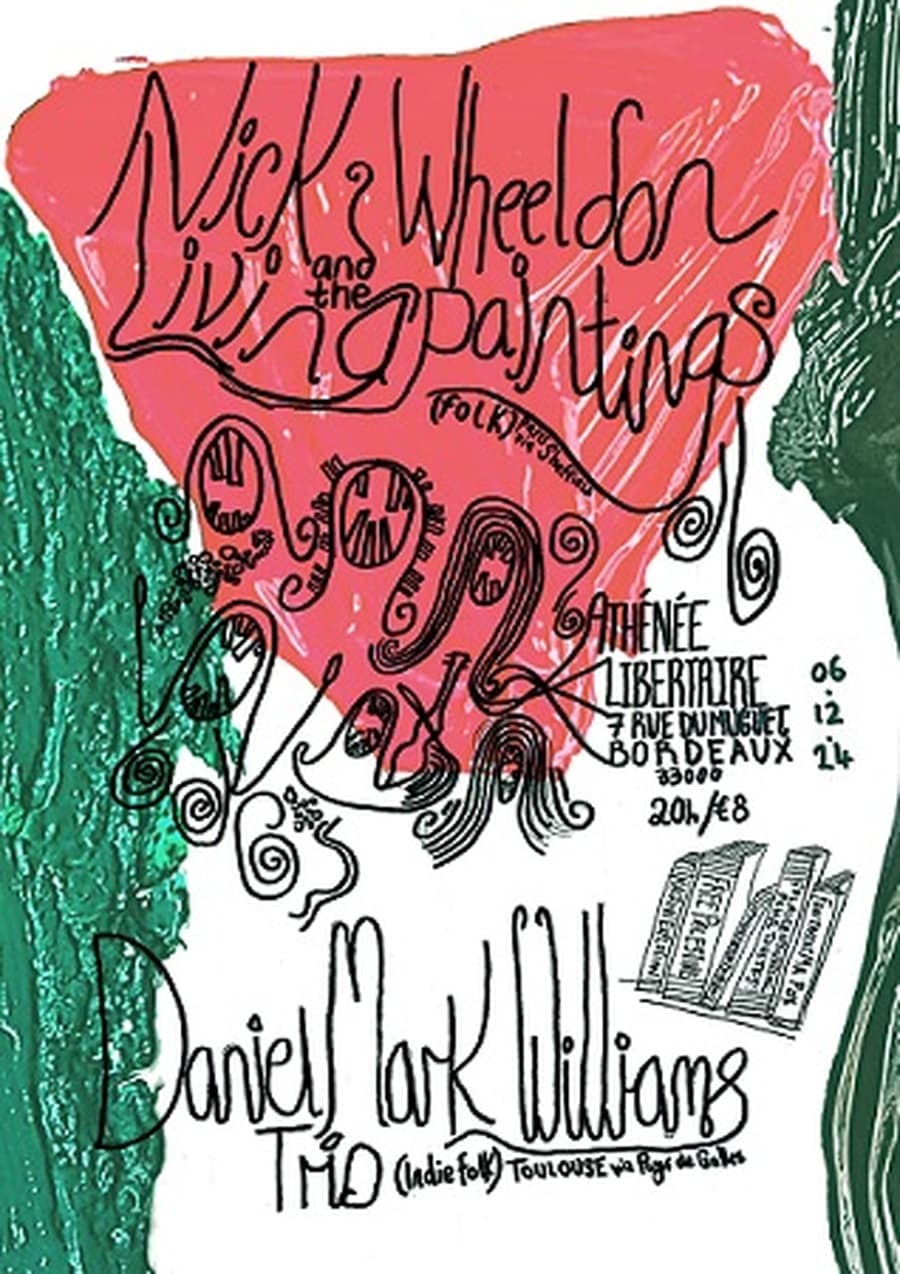 Nick Wheeldon
and the
Living Paintings
(Folk) Paris
via Sheffield
ATHÉNÉE
LIBERTAIRE
7 RUE DU MUGUET
BORDEAUX
33000
20h/€8
06
.
12
.
24
FREE PALESTINE
Daniel Mark Williams
Trio (Indie Folk) TOULOUSE via Pays de Galles